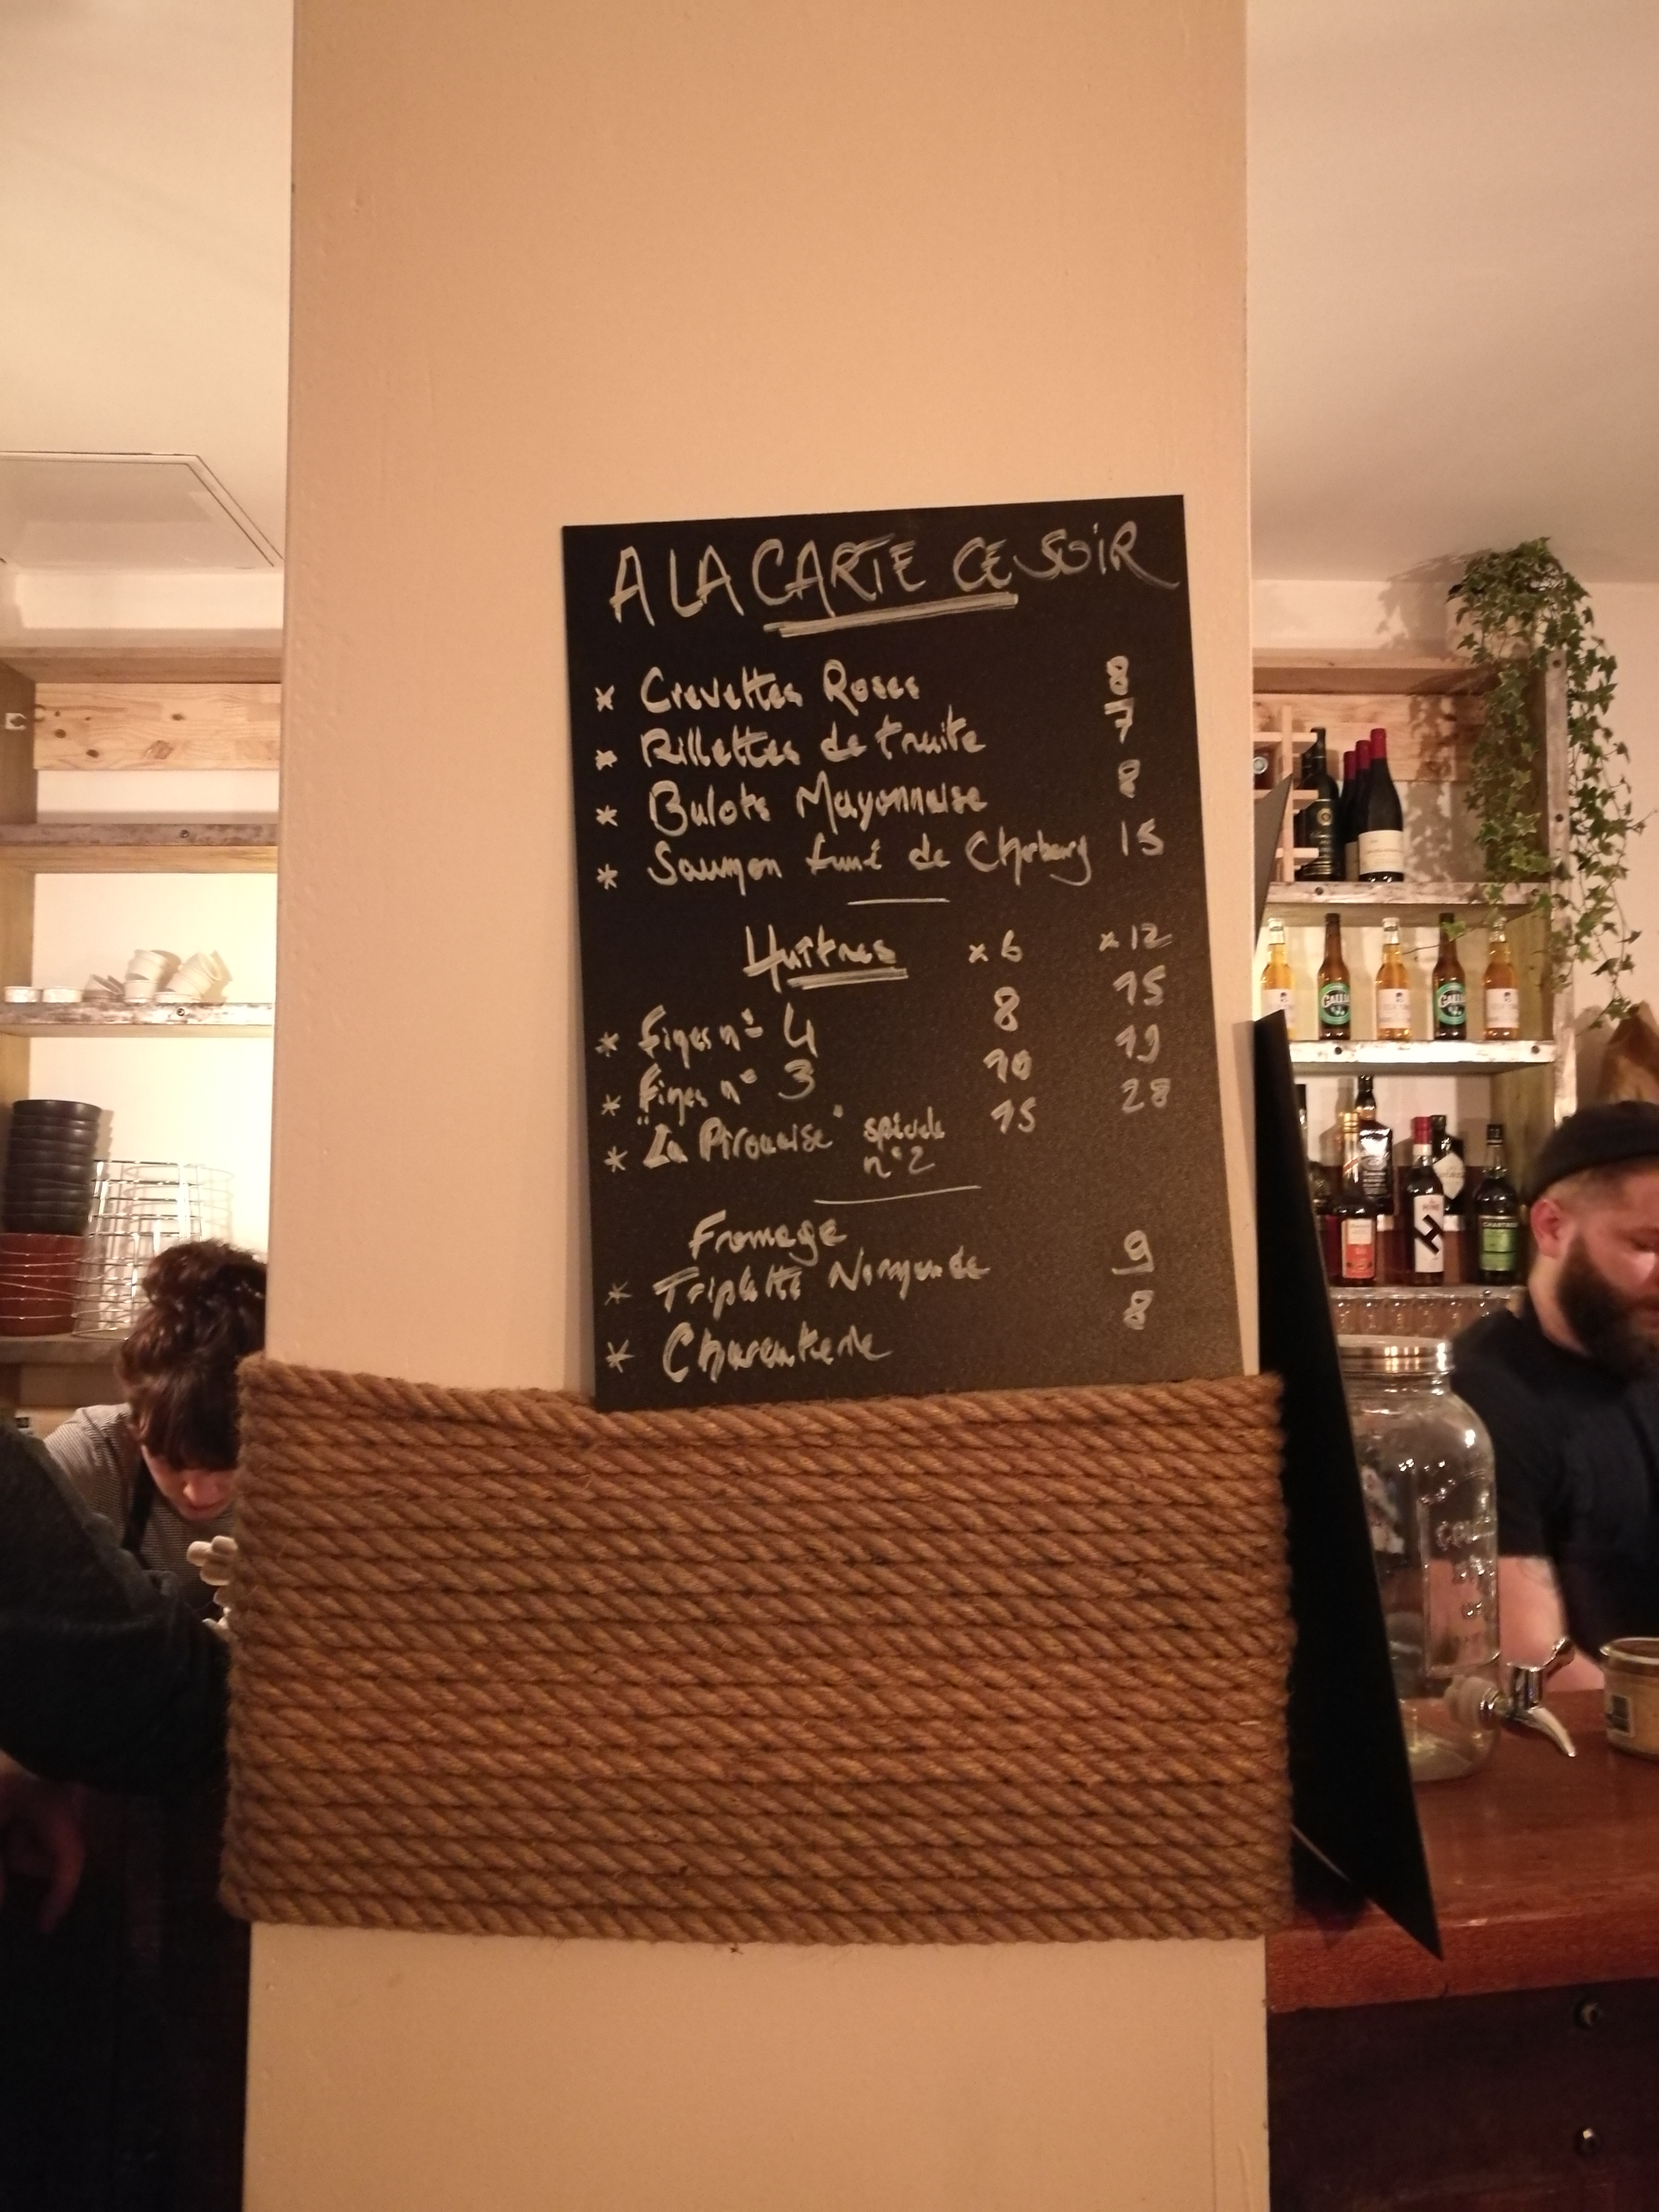 A LA CARTE CE SOIR
* Crevettes Roses 8
* Rillettes de truite 7
* Bulots Mayonnaise 8
* Saumon fumé de Cherbourg 15
Huîtres x6 x12
* Fines n° 4 8 15
* Fines n° 3 10 19
* "La Pirouaise" spéciale n°2 15 28
Fromage
* Triplette Normande 9
* Charcuterie 8
GALLIA
GALLIA
H
CHARTREUSE